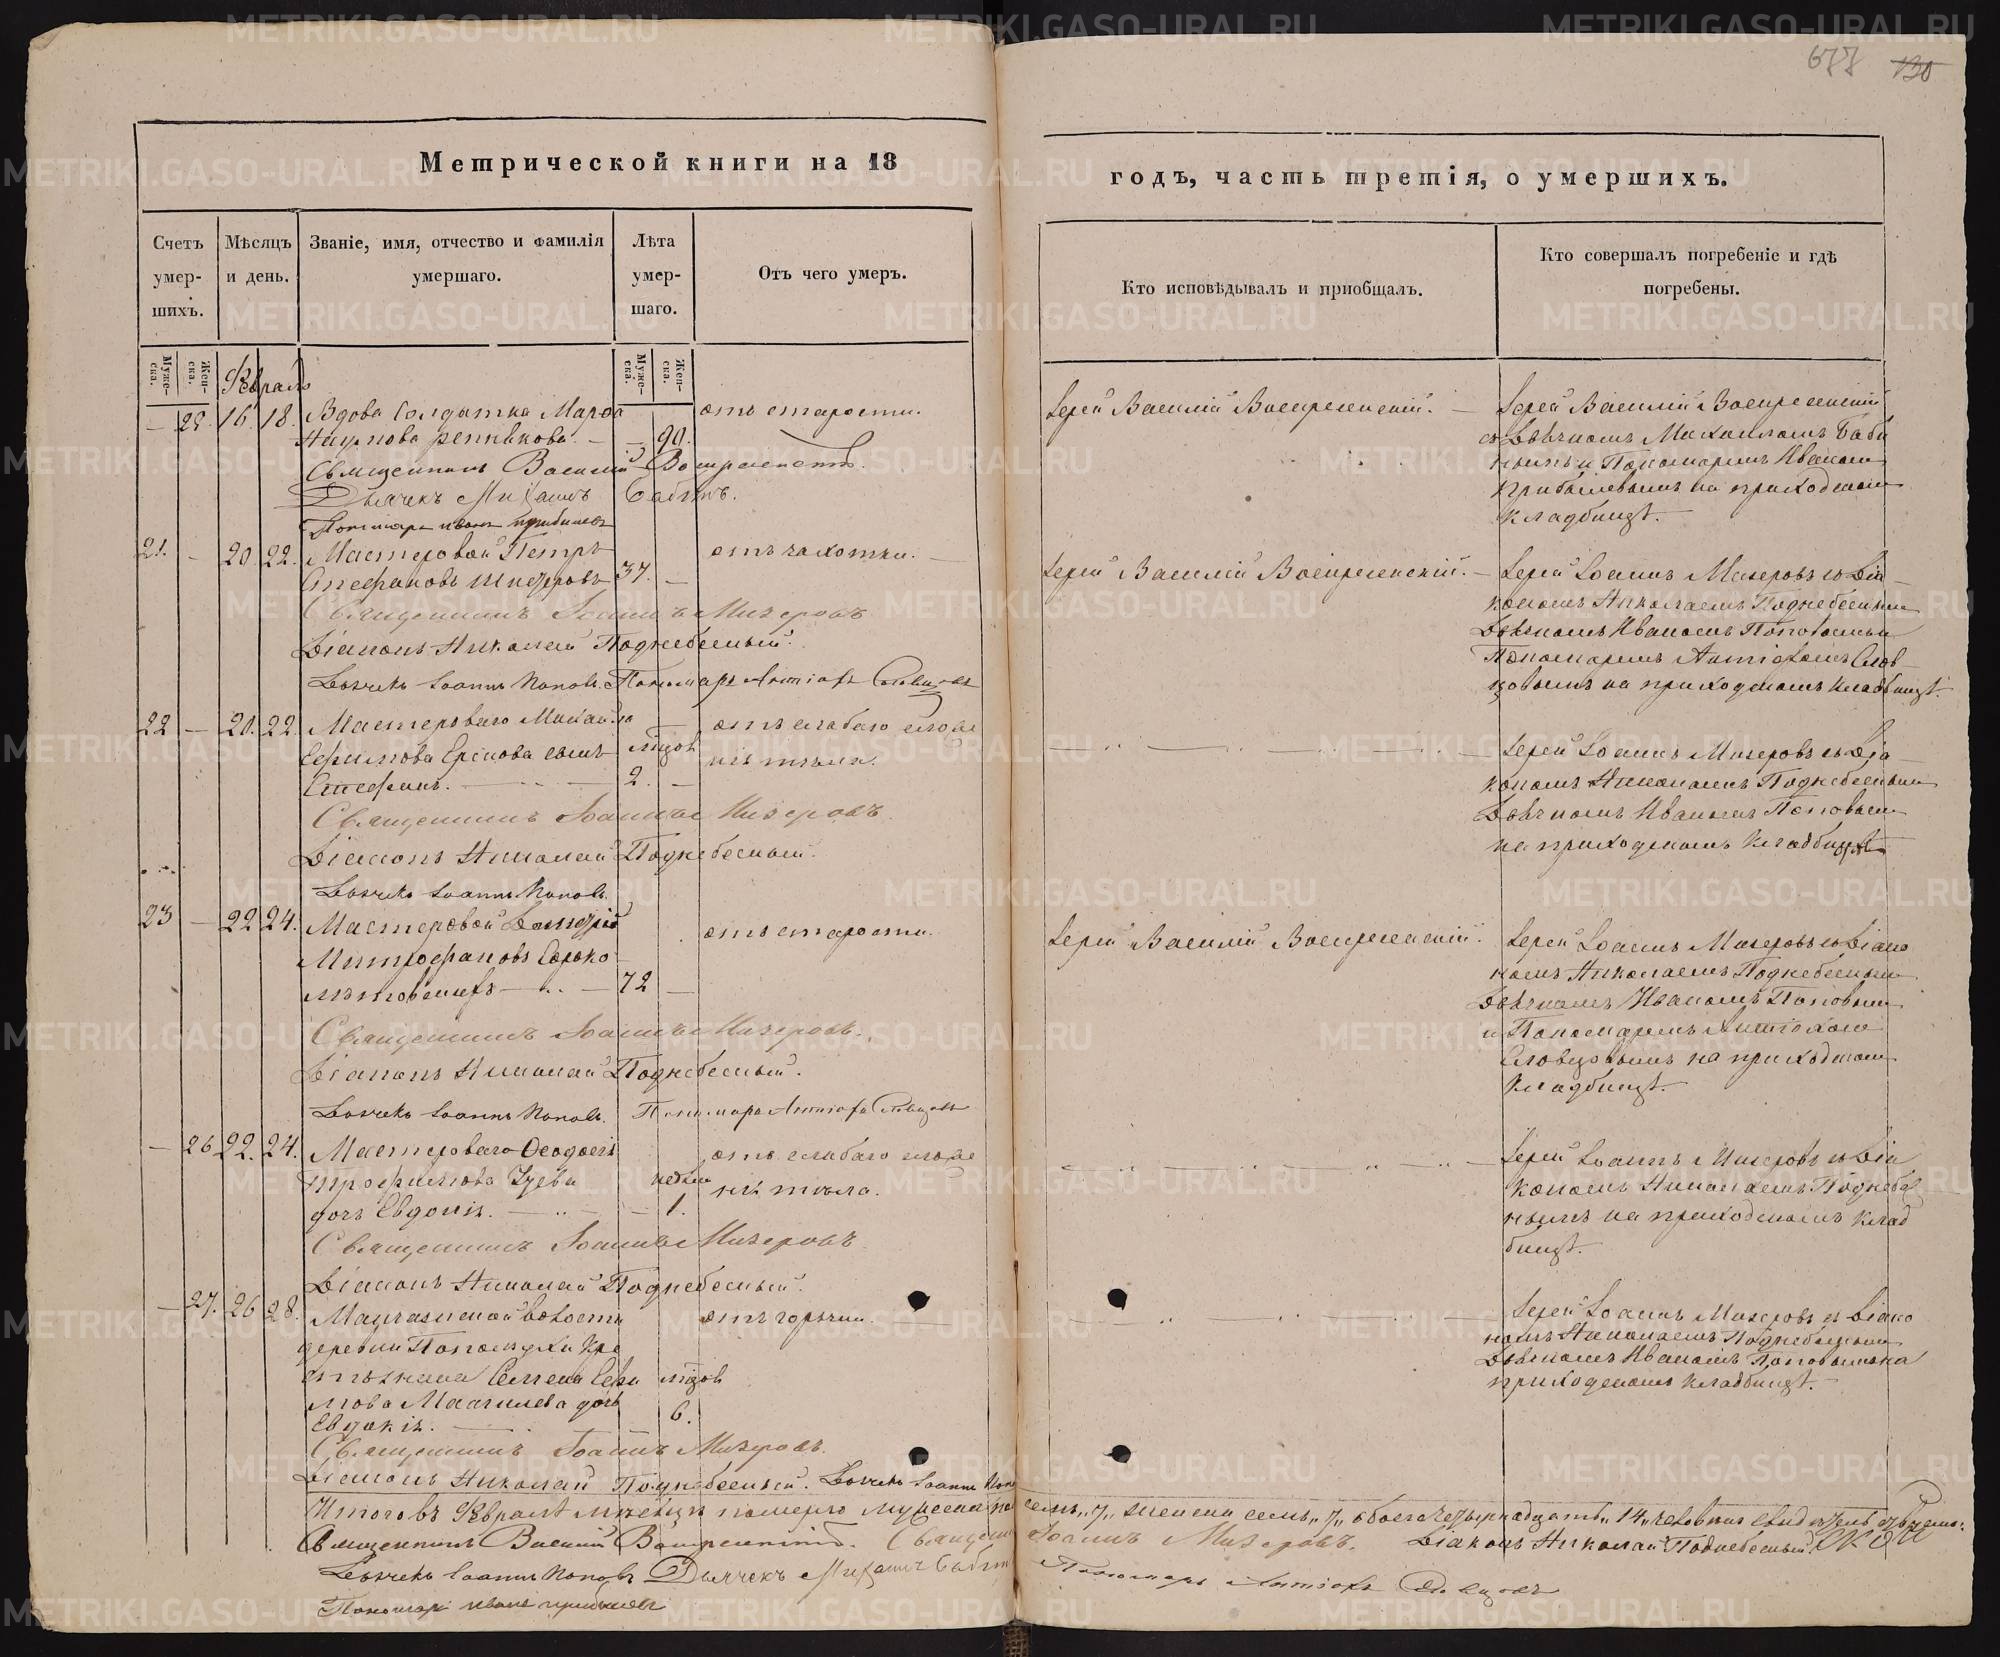 677 130
Метрической книги на 18
годъ, часть третія, о умершихъ.
Счетъ умер-
шихъ.
Мѣсяцъ
и день.
Званіе, имя, отчество и фамилія
умершаго.
Лѣта
умер-
шаго.
Отъ чего умеръ.
Кто исповѣдывалъ и пріобщалъ.
Кто совершалъ погребеніе и гдѣ
погребены.
Муже-
ска.
Жен-
ска.
Муже-
ска.
Жен-
ска.
Февраль
16. 18. Вдова Солдатка Марѳа
Наумова 90. отъ старости.
Іерей Василій Воскресенскій.
Іерей Василій Воскресенскій
съ Дьячкомъ Михаиломъ Баби
нымъ и Пономаремъ Иваномъ
Прибылевымъ на приходскомъ
кладбищѣ.
Священникъ Василій Воскресенскій.
Дьячекъ Михаилъ Бабинъ.
Пономарь Иванъ Прибылевъ
21. — 20. 22. Мастеровой Петръ
Стефановъ 37. — отъ чахотки.
Іерей Василій Воскресенскій.
Іерей Іоаннъ Мизеровъ съ Діа
кономъ Николаемъ Поднебеснымъ
Дьячкомъ Иваномъ Поповымъ и
Пономаремъ Антіохомъ Слов
цовымъ на приходскомъ кладбищѣ.
Священникъ Іоаннъ Мизеровъ
Діаконъ Николай Поднебесный.
Дьячекъ Іоаннъ Поповъ. Пономарь Антіохъ Словцовъ
22 — 20. 22. Мастероваго Михаила
Ефимова сынъ
Стефанъ. мѣсяцов 2. — отъ слабаго сложе
нія тѣла.
Іерей Іоаннъ Мизеровъ съ Діа
кономъ Николаемъ Поднебеснымъ
Дьячкомъ Иваномъ Поповымъ
на приходскомъ кладбищѣ
Священникъ Іоаннъ Мизеровъ.
Діаконъ Николай Поднебесный.
Дьячекъ Іоаннъ Поповъ.
23 — 22 24. Мастеровой
Митрофановъ Сороко
72 — отъ старости.
Іерей Василій Воскресенскій.
Іерей Іоаннъ Мизеровъ съ Діако
номъ Николаемъ Поднебеснымъ
Дьячкомъ Иваномъ Поповымъ
и Пономаремъ Антіохомъ
Словцовымъ на приходскомъ
кладбищѣ.
Священникъ Іоаннъ Мизеровъ.
Діаконъ Николай Поднебесный.
Дьячекъ Іоаннъ Поповъ. Пономарь Антіохъ Словцовъ
— 26 22. 24. Мастероваго Ѳеодосія
Трофимова Зуева
дочь Евдокія. недѣли 1. отъ слабаго сложе
нія тѣла.
Іерей Іоаннъ Мизеровъ съ Діа
кономъ Николаемъ Поднебес
нымъ на приходскомъ клад
бищѣ.
Священникъ Іоаннъ Мизеровъ
Діаконъ Николай Поднебесный.
— 27. 26 28. волости
деревни Кре
стьянина Семена
дочь
Евдокія. мѣсяцов 6. отъ горячки.
Іерей Іоаннъ Мизеровъ съ Діако
номъ Николаемъ Поднебеснымъ
Дьячкомъ Иваномъ Поповымъ на
приходскомъ кладбищѣ.
Священникъ Іоаннъ Мизеровъ.
Діаконъ Николай Поднебесный. Дьячекъ Іоаннъ Попо
Итого въ Февралѣ мѣсяцѣ померло мужеска пола семь „7„ женска семь „7„ обоего четырнадцать „14„ человѣкъ
Священникъ Василій Воскресенскій. Священникъ Іоаннъ Мизеровъ. Діаконъ Николай Поднебесный.
Дьячекъ Іоаннъ Поповъ Дьячекъ Михаилъ Бабинъ Пономарь Антіохъ Словцовъ
Пономарь Иванъ Прибылевъ
METRIKI.GASO-URAL.RU